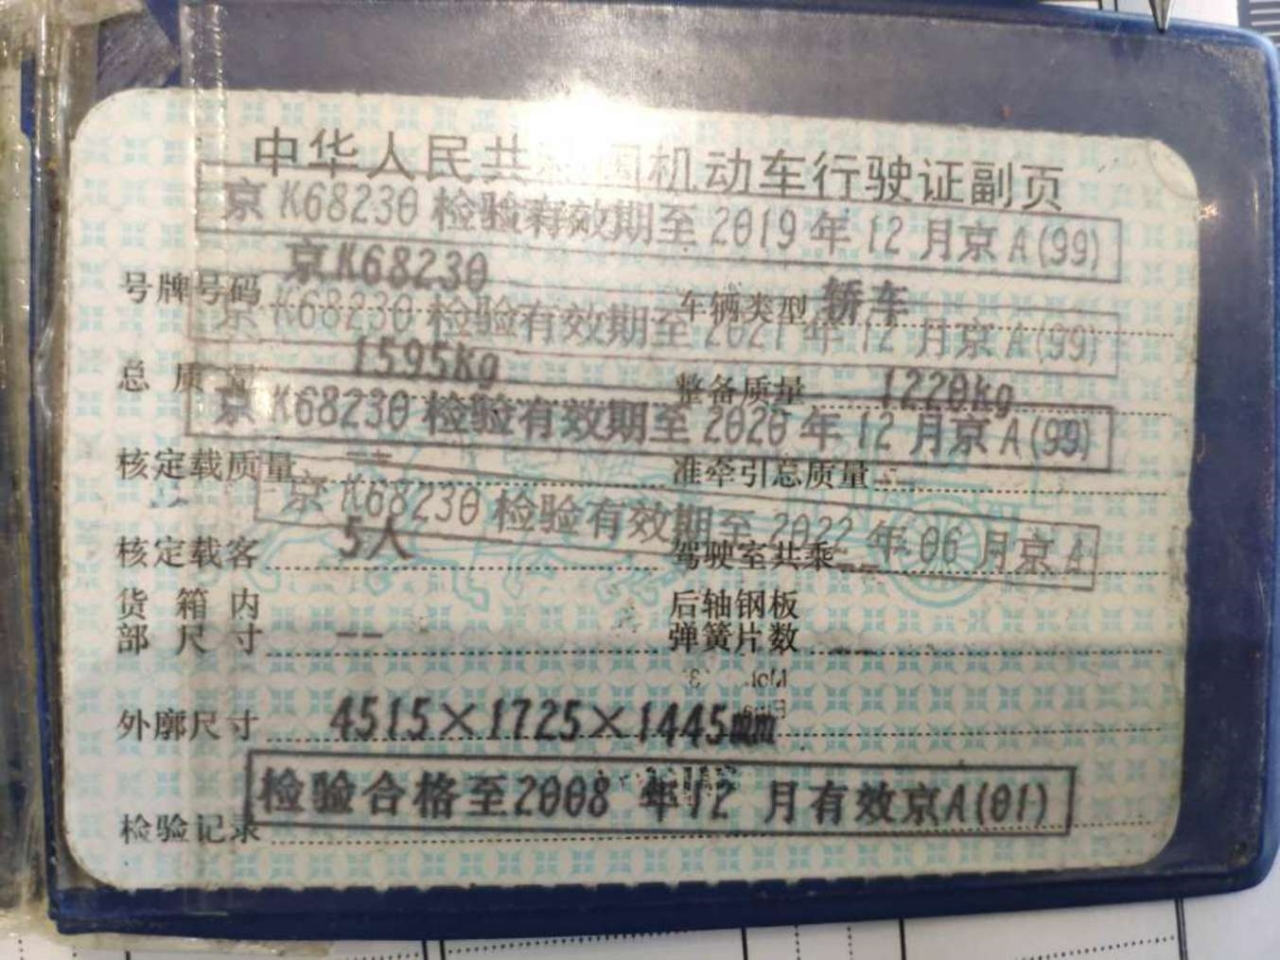 中华人民共和国机动车行驶证副页
京K68230检验有效期至2019年12月京A(99)
号牌号码 京K68230 车辆类型 轿车
京K68230检验有效期至2021年12月京A(99)
总质量 1595Kg 整备质量 1220kg
京K68230检验有效期至2020年12月京A(99)
核定载质量 -- 准牵引总质量 --
京K68230检验有效期至2022年06月京A
核定载客 5人 驾驶室共乘 --
货箱内 后轴钢板
部尺寸 -- 弹簧片数 --
外廓尺寸 4515×1725×1445mm
检验合格至2008年12月有效京A(01)
检验记录